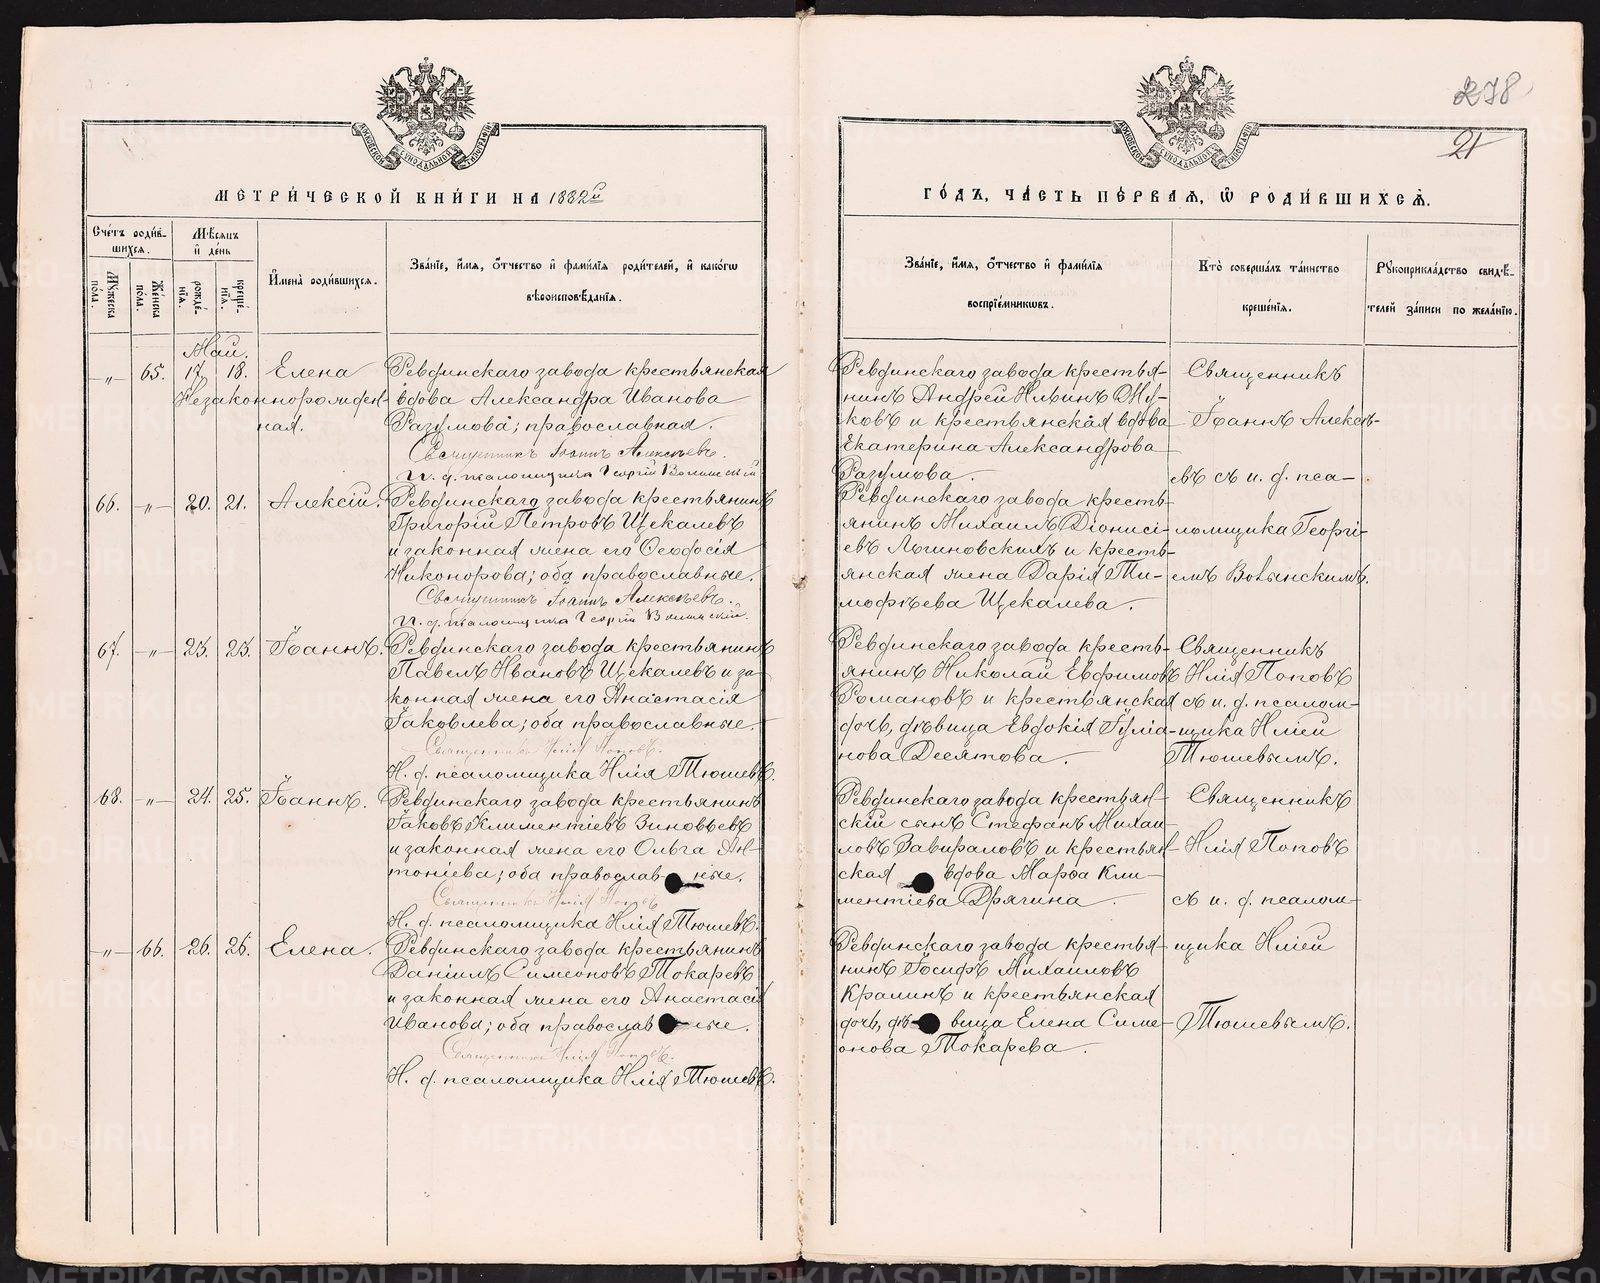 278
21
МЕТРИ́ЧЕСКОЙ КНИ́ГИ НА 1882й
ГО́ДЪ, ЧА́СТЬ ПЕ́РВАЯ, Ѽ РОДИ́ВШИХСЯ.
Сче́тъ роди́в-
шихся.
Мꙋжеска по́ла.
Же́нска по́ла.
Мѣ́сяцъ
и̂ де́нь
рожде́-
нїя.
креще́-
нїя.
И̂мена̀ роди́вшихся.
Зва́нїе, и̂́мя, о̂́тчество и̂ фами́лїя роди́телей, и̂ како́гѡ
вѣроисповѣ́данїя.
Зва́нїе, и̂́мя, о̂́тчество и̂ фами́лїя
воспрїе́мникѡвъ.
Кто̀ соверша́лъ та́инство
креще́нїя.
Рꙋкоприкла́дство свидѣ́-
телей за́писи по жела́нїю.
Май.
-"- 65. 17. 18. Елена
Незаконнорожден-
ная.
Ревдинскаго завода крестьянская
вдова Александра Иванова
Разумова; православная.
Священникъ Іоаннъ Алексѣевъ.
И. д. псаломщика Георгій Волынскій
Ревдинскаго завода крестья-
нинъ Андрей Ильинъ Жу-
ковъ и крестьянская вдова
Екатерина Александрова
Разумова.
Священникъ
Іоаннъ Алексѣ-
евъ съ и. д. пса-
66. -"- 20. 21. Алексій.
Ревдинскаго завода крестьянинъ
Григорій Петровъ Щекалевъ
и законная жена его Ѳеодосія
Никонорова; оба православные.
Священникъ Іоаннъ Алексѣевъ.
И. д. псаломщика Георгій Волынскій.
Ревдинскаго завода кресть-
янинъ Михаилъ Діонисі-
евъ Логиновскихъ и кресть-
янская жена Дарія Ти-
мофѣева Щекалева.
ломщика Георгі-
емъ Волынскимъ.
67. -"- 23. 25. Іоаннъ.
Ревдинскаго завода крестьянинъ
Павелъ Ивановъ Щекалевъ и за-
конная жена его Анастасія
Іаковлева; оба православные.
Священникъ Илія Поповъ.
И. д. псаломщика Илія Тюшевъ.
Ревдинскаго завода кресть-
янинъ Николай Евфимовъ
Романовъ и крестьянская
дочь, дѣвица Евдокія Іулiа-
нова Десятова.
Священникъ
Илія Поповъ
съ и. д. псалом-
щика Иліей
Тюшевымъ.
68. -"- 24. 25. Іоаннъ.
Ревдинскаго завода крестьянинъ
Іаковъ Климентіевъ Зиновьевъ
и законная жена его Ольга Ан-
тоніева; оба православ- ные.
Священникъ Илія Поповъ
И. д. псаломщика Илія Тюшевъ.
Ревдинскаго завода крестьян-
скій сынъ Стефанъ Михаи-
ловъ Завираловъ и крестьян-
ская вдова Марѳа Кли-
ментіева Дрягина.
Священникъ
Илія Поповъ
съ и. д. псалом-
-"- 66. 26. 26. Елена.
Ревдинскаго завода крестьянинъ
Даніилъ Симеоновъ Токаревъ
и законная жена его Анастасія
Иванова; оба православ- ные.
Священникъ Илія Поповъ.
И. д. псаломщика Илія Тюшевъ.
Ревдинскаго завода крестья-
нинъ Іосифъ Михаиловъ
Кралинъ и крестьянская
дочь, дѣ- вица Елена Симе-
онова Токарева.
щика Иліей
Тюшевымъ.
METRIKI.GASO-URAL.RU